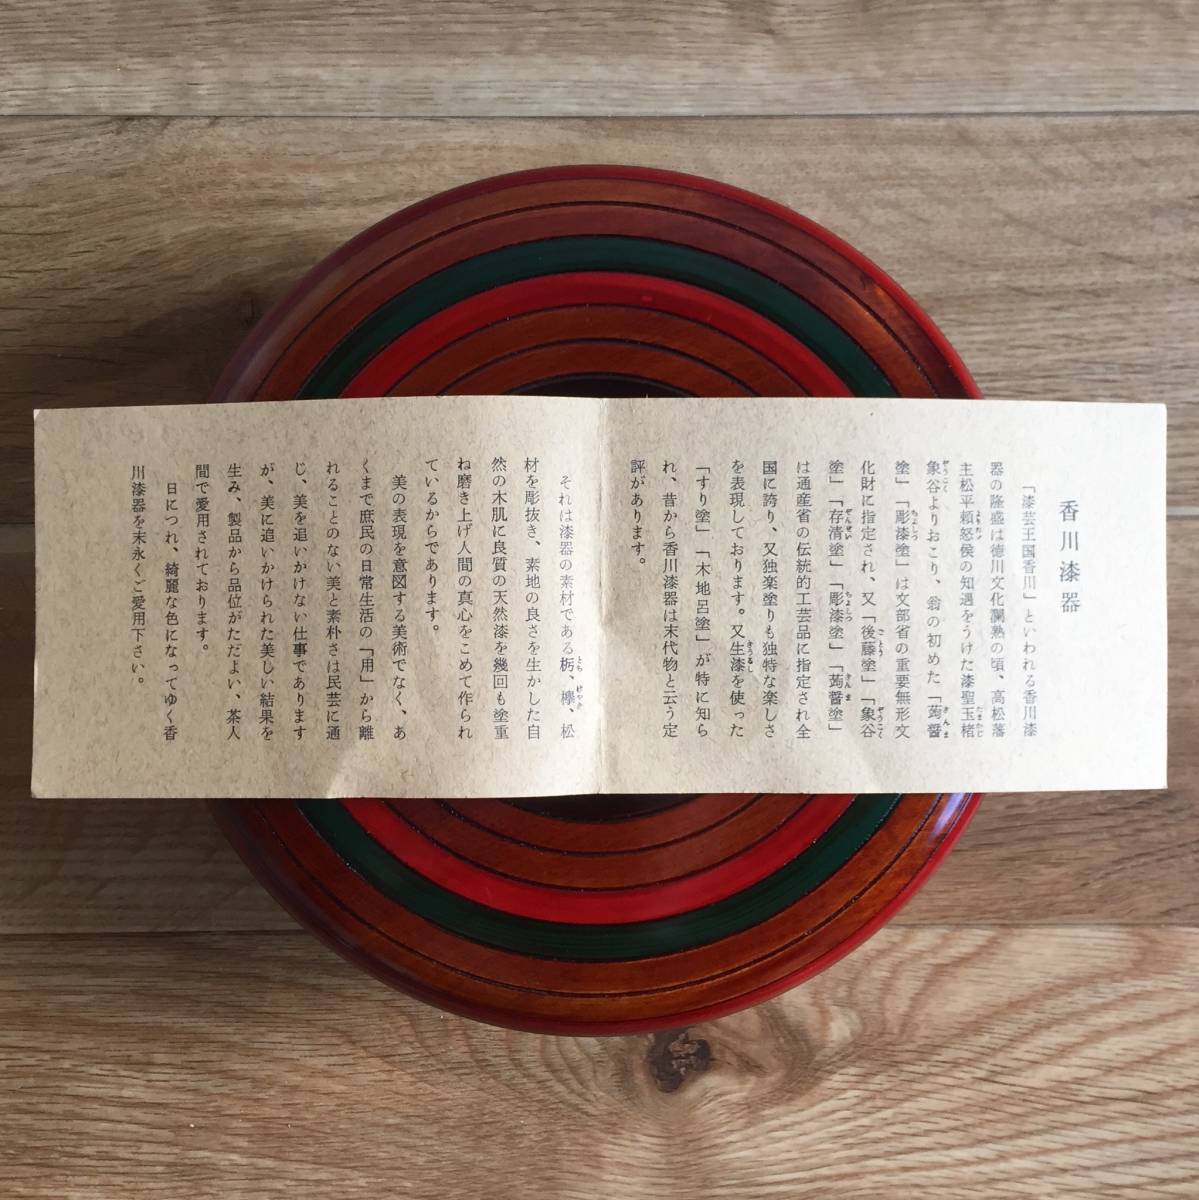 香川漆器
「漆芸王国香川」といわれる香川漆
器の隆盛は徳川文化瀾熟の頃、高松藩
主松平頼恕侯の知遇をうけた漆聖玉楮
象谷よりおこり、翁の初めた「蒟醤
塗」「彫漆塗」は文部省の重要無形文
化財に指定され、又「後藤塗」「象谷
塗」「存清塗」「彫漆塗」「蒟醤塗」
は通産省の伝統的工芸品に指定され全
国に誇り、又独楽塗りも独特な楽しさ
を表現しております。又生漆を使った
「すり塗」「木地呂塗」が特に知ら
れ、昔から香川漆器は末代物と云う定
評があります。
それは漆器の素材である栃、欅、松
材を彫抜き、素地の良さを生かした自
然の木肌に良質の天然漆を幾回も塗重
ね磨き上げ人間の真心をこめて作られ
ているからであります。
美の表現を意図する美術でなく、あ
くまで庶民の日常生活の「用」から離
れることのない美と素朴さは民芸に通
じ、美を追いかけない仕事であります
が、美に追いかけられた美しい結果を
生み、製品から品位がただよい、茶人
間で愛用されております。
日につれ、綺麗な色になってゆく香
川漆器を末永くご愛用下さい。